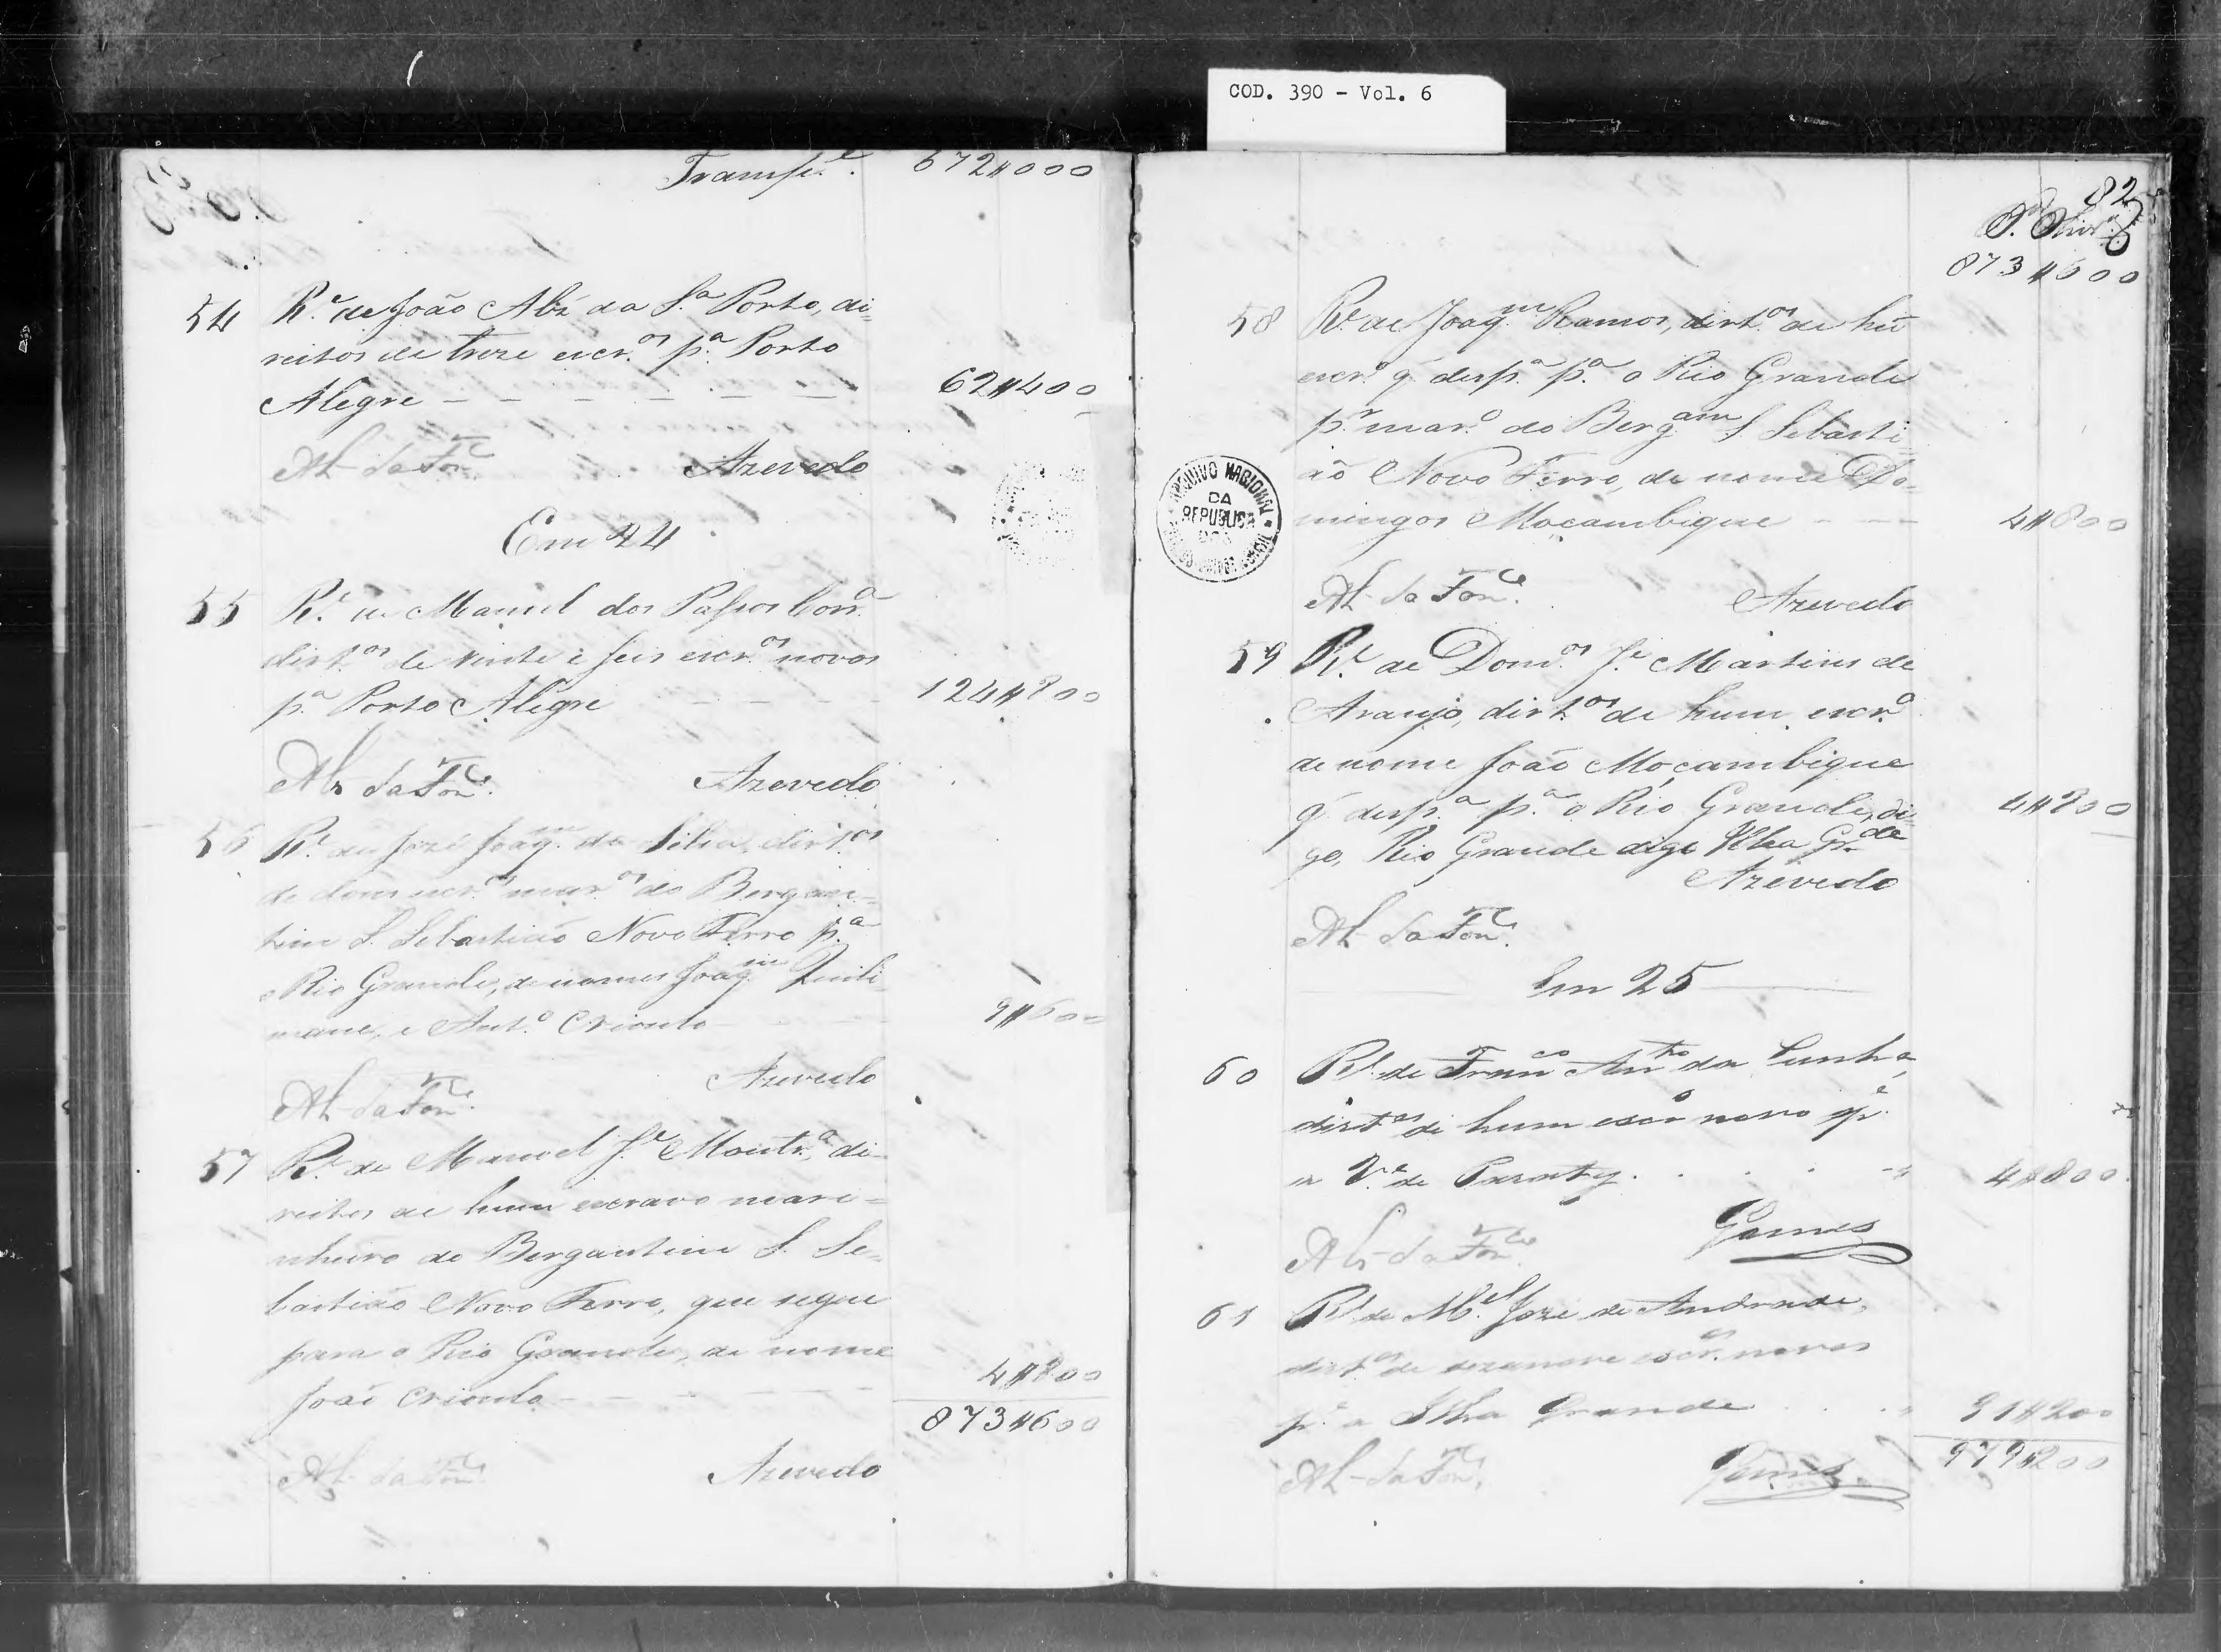 COD. 390 - Vol. 6
Transp.e 672$000
54 R.e de João Alz' da S.a Porto, di=
reitos de treze escr.os p.a Porto
Alegre 62$400
Azevedo
Em 24
55 R.e de Manoel dos Passos Corr.a
dirt.os de vinte e seis escr.os novos
p.a Porto Alegre 124$800
Azevedo
56 R.e de José Joaq.m da Silva, dirt.os
de dous escr.os mar.os do Bergan=
tim S. Sebastião Novo Ferro p.a
o Rio Grande, de nomes Joaq.m Quili=
mane, e Ant.o Crioulo 9$600
Azevedo
57 R.e de Manoel J.e Montr.a, di=
reitos de hum escravo mari=
nheiro do Bergantim S. Se=
bastião Novo Ferro, que segue
para o Rio Grande, de nome
João Crioulo 4$800
873$600
Azevedo
82
873$600
58 R.e de Joaq.m Ramos, dirt.os de hũ
escr.o q' desp.a p.a o Rio Grande
p.r mar.o do Berg.am S. Sebasti=
ão Novo Ferro, de nome Do=
mingos Moçambique 4$800
ARQUIVO NACIONAL
DA
REPUBLICA
Azevedo
59 R.e de Dom.os J.e Martins de
Araujo, dirt.os de hum escr.o
de nome João Moçambique
q' desp.a p.a o Rio Grande, di= 4$800
go, Rio Grande digo Ilha Gr.de
Azevedo
Em 25
60 R.e de Fran.co An.to da Cunha,
dirt.os de hum escr.o novo p.a
a V.a de Paraty 4$800
Gomes
61 R.e de M.el Joze de Andrade,
dirt.os de dezanove escr.os novos
p.a a Ilha Grande 91$200
979$200
Gomes